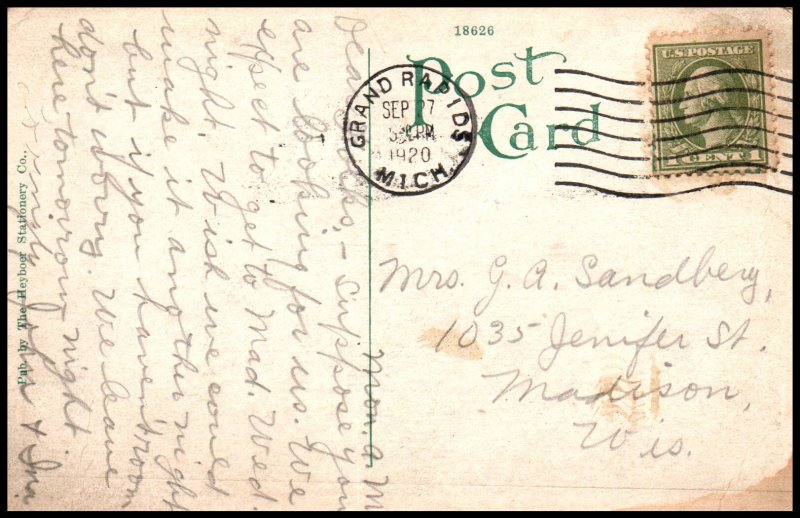 18626
Post
Card
GRAND RAPIDS
SEP 27
1920
MICH.
U.S. POSTAGE
1 CENT 1
Mrs. G. A. Sandberg,
1035 Jenifer St.
Madison,
Wis.
Mon. a M
Dear Folks, – Suppose you
are looking for us. We
expect to get to Mad. Wed.
night. Wish we could
make it another night
but if you haven't room
don't worry. We leave
here tomorrow night
John & Ina
Pub. by The Heyboer Stationery Co.,